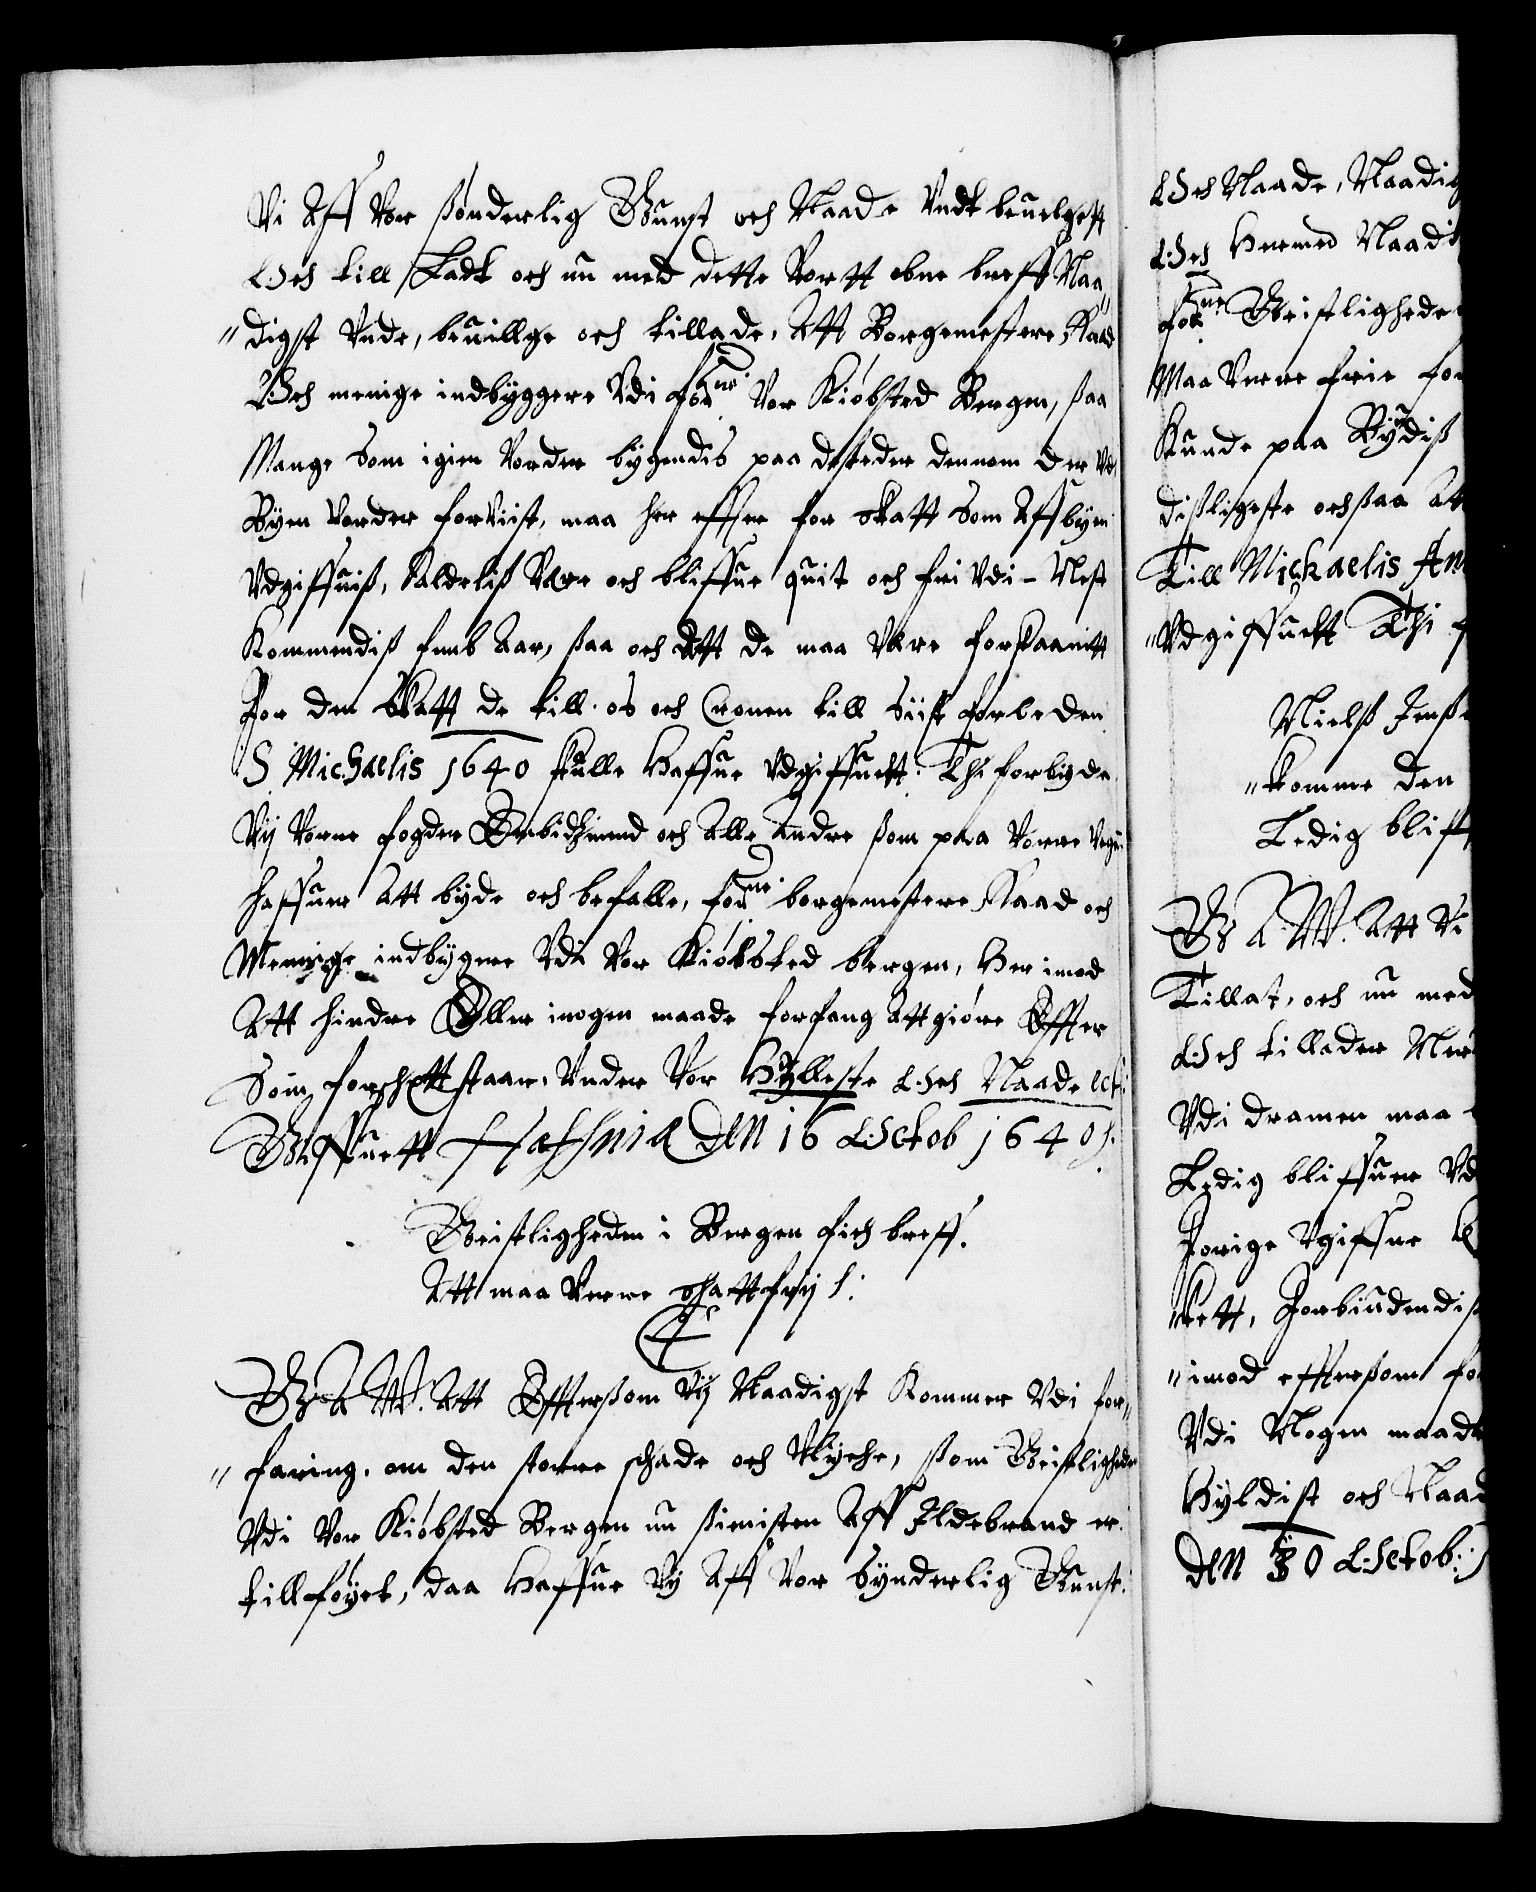 Vi Aff Vor sønderlig Gunst och Naade Vndt beuelgett
Och till Ladt och nu med dette Vortt obne breff Naa„
„digst Vnde, beuillge och tillade, Att Borgemestere Raad
Och menige indbyggere Vdi for:ne Vor Kiøbsted Bergen, ßaa
Mange som igien Vorder bygendis paa de steder dennom der Vdi
Byen Vorder forViist, maa her effter for skatt som Aff byen
Vdgiffuis, Være och bliffue quit och fri Vdi Nest
Kommendiß femb Aar, ßaa och Att de maa Være forskaanitt
For den Skatt de till os och Cronen till siist forleden
S Michaelis 1640 skulle Haffue Vdgiffuett: Thi forbyde
Vij Vorre fogder Embidzmend och Alle Andre ßom paa Vorre Vegne
haffuer Att byde och befalle, for:ne borgemestere Raad och
Menige indbygere Vdi Vor Kiøbsted bergen, Her imod
Att hindre Eller i nogen maade forfang Att giøre Effter
Som forschreffuett staar, Vnder Vor Hylleste Och Naade etc:
Giffuett Hafniæ Den 16 Octob 1640.
Geistligheden i Bergen fich breff.
Att maa Verre skattfrij.
G A W. Att Effterßom Vij Naadigst Kommer Vdi for„
„faring, om den storre schade och Vlyche, ßom Geistligheden
Vdi Vor Kiøbsted Bergen nu ßiinisten Aff Ildebrand er
tillføyet, daa Haffue Vij Aff Vor synderlig Gunst
Och Naade, Naadig
Och Hermed Naadi
for:ne Geistlighede
Maa Verre frie for
Kunde paa Byudiß
dißligeste och ßaa Att
Till Michaelis An
„Vdgiffuett Thi f
Nielß Jenß
„komme den
Ledig bliff
G A W. Att Vi
Tillat, och nu med
Och tillader Mer
Vdi dramen maa
Ledig bliffuer Vd
Forige Vgiffue
Rett, Forbiudendiß
„imod effterßom fo
Vdi Nogen maade
Hyldist och Naad
Den 30 Octob: